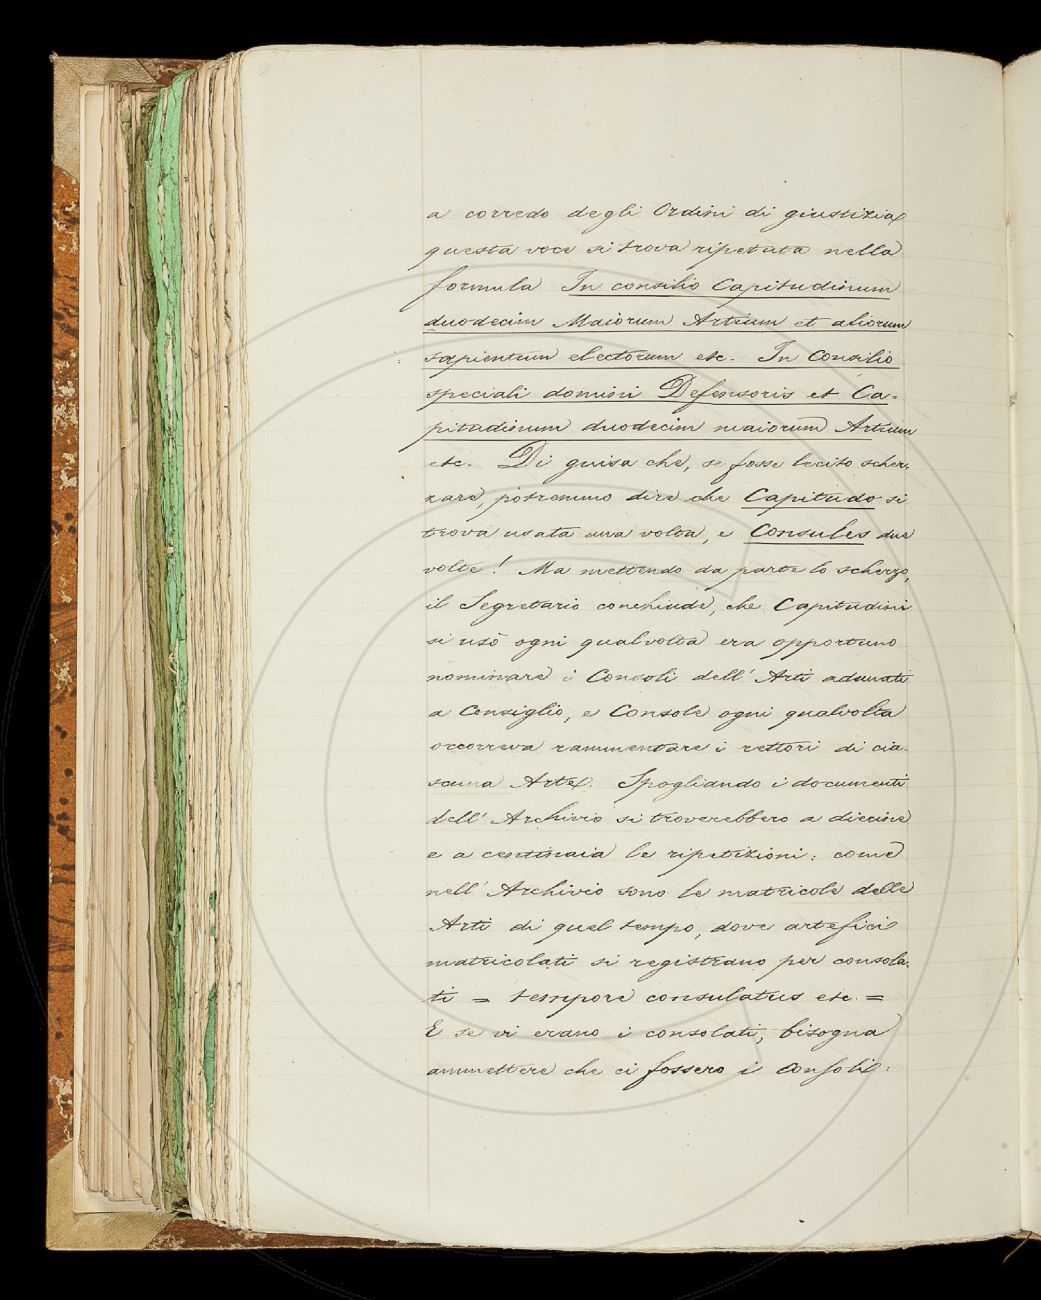 a corredo degli Ordini di giustizia
questa voce si trova ripetuta nella
formula In consilio Capitudinum
duodecim Maiorum Artium et aliorum
sapientum electorum etc. In Consilio
speciali domini Defensoris et Ca-
pitudinum duodecim maiorum Artium
etc. Di guisa che, se fosse lecito scher-
zare, potremmo dire che Capitudo si
trova usata una volta, e Consules due
volte! Ma mettendo da parte lo scherzo,
il Segretario conchiude, che Capitudini
si usò ogni qualvolta era opportuno
nominare i Consoli dell' Arti adunati
a Consiglio, e Console ogni qualvolta
occorreva rammentare i rettori di cia-
scuna Arte. Spogliando i documenti
dell' Archivio si troverebbero a diecine
e a centinaia le ripetizioni: come
nell' Archivio sono le matricole delle
Arti di quel tempo, dove artefici
matricolati si registrano per consola-
ti = tempore consulatus etc. =
E se vi erano i consolati, bisogna
ammettere che ci fossero i Consoli: